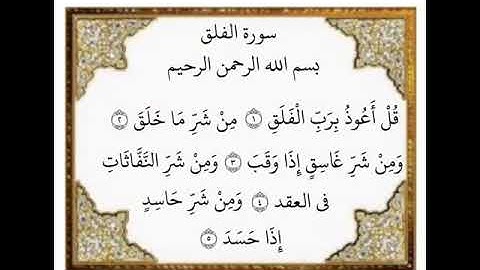 سورة الفلق
بسم الله الرحمن الرحيم
قُلْ أَعُوذُ بِرَبِّ الْفَلَقِ ۝١ مِنْ شَرِّ مَا خَلَقَ ۝٢
وَمِنْ شَرِّ غَاسِقٍ إِذَا وَقَبَ ۝٣ وَمِنْ شَرِّ النَّفَّاثَاتِ
فى العقد ۝٤ وَمِنْ شَرِّ حَاسِدٍ
إِذَا حَسَدَ ۝٥